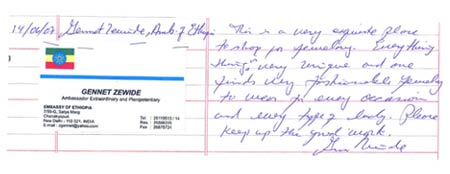 14/06/07 Gennet Zewide, Amb. of Ethiopia
GENNET ZEWIDE
Ambassador Extraordinary and Plenipotentiary
EMBASSY OF ETHIOPIA
7/50-G, Satya Marg
Chanakyapuri
New Delhi - 110 021, INDIA
E-mail :
Tel :
Res. :
Fax :
This is a very exquisite place
to shop for jewelery. Everything
is very unique and one
finds very fashionable jewelry
to wear to every occasion
and every type of lady. Please
keep up the good work.